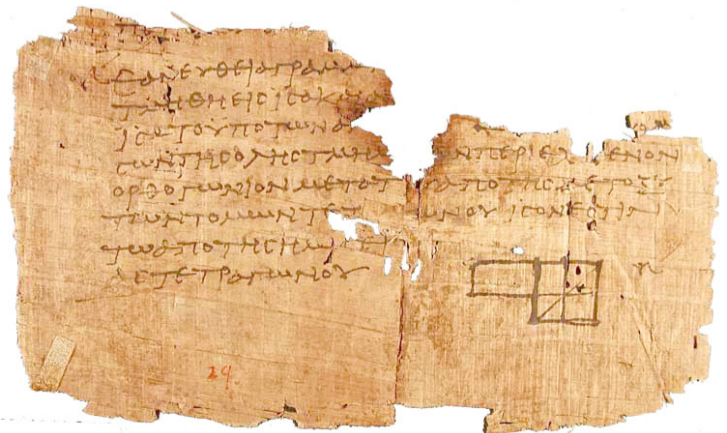 ΕΑΝΕΥΘΕΙΑΓΡΑΜ
ΤΜΗΘΗΕΙΣΙΣΑΚΑΙΑ
ΙΣΑΤΟΥΠΟΤΩΝΑ
ΤΩΝΤΗΣΟΛΗΣΤΜΗΜ ΩΝΠΕΡΙΕΧ ΜΕΝΟΝ
ΟΡΘΟΓΩΝΙΟΝΜΕΤΟΤ ΑΠΟΤΗΣΜΕΤΟΞΥ
ΤΩΝΤΟΜΩΝΤΕΤ ΩΝΟΥΙΣΟΝΕΣΤΙΝ
ΤΩΑΠΟΤΗΣΗΜΙΣΕΙ
ΑΣΤΕΤΡΑΓΩΝΟΥ
29.